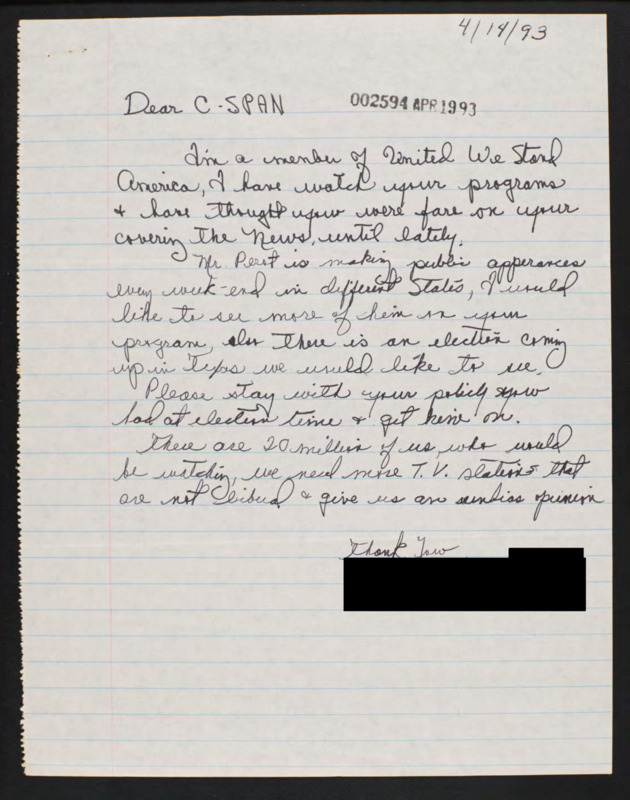 4/14/93
Dear C-SPAN
002594 APR 1993
I'm a member of United We Stand
America, I have watch your programs
& have thought yow were fare on your
covering the News, until lately.
Mr. Perot is making public apperances
every week-end in different States, I would
like to see more of him on your
program, also there is an election coming
up in Texas we would like to see.
Please stay with your policy yow
had at election time & get him on.
there are 20 million of us, who would
be watching, we need more T.V. stations that
are not libual & give us an unbias opinion
thank Yow